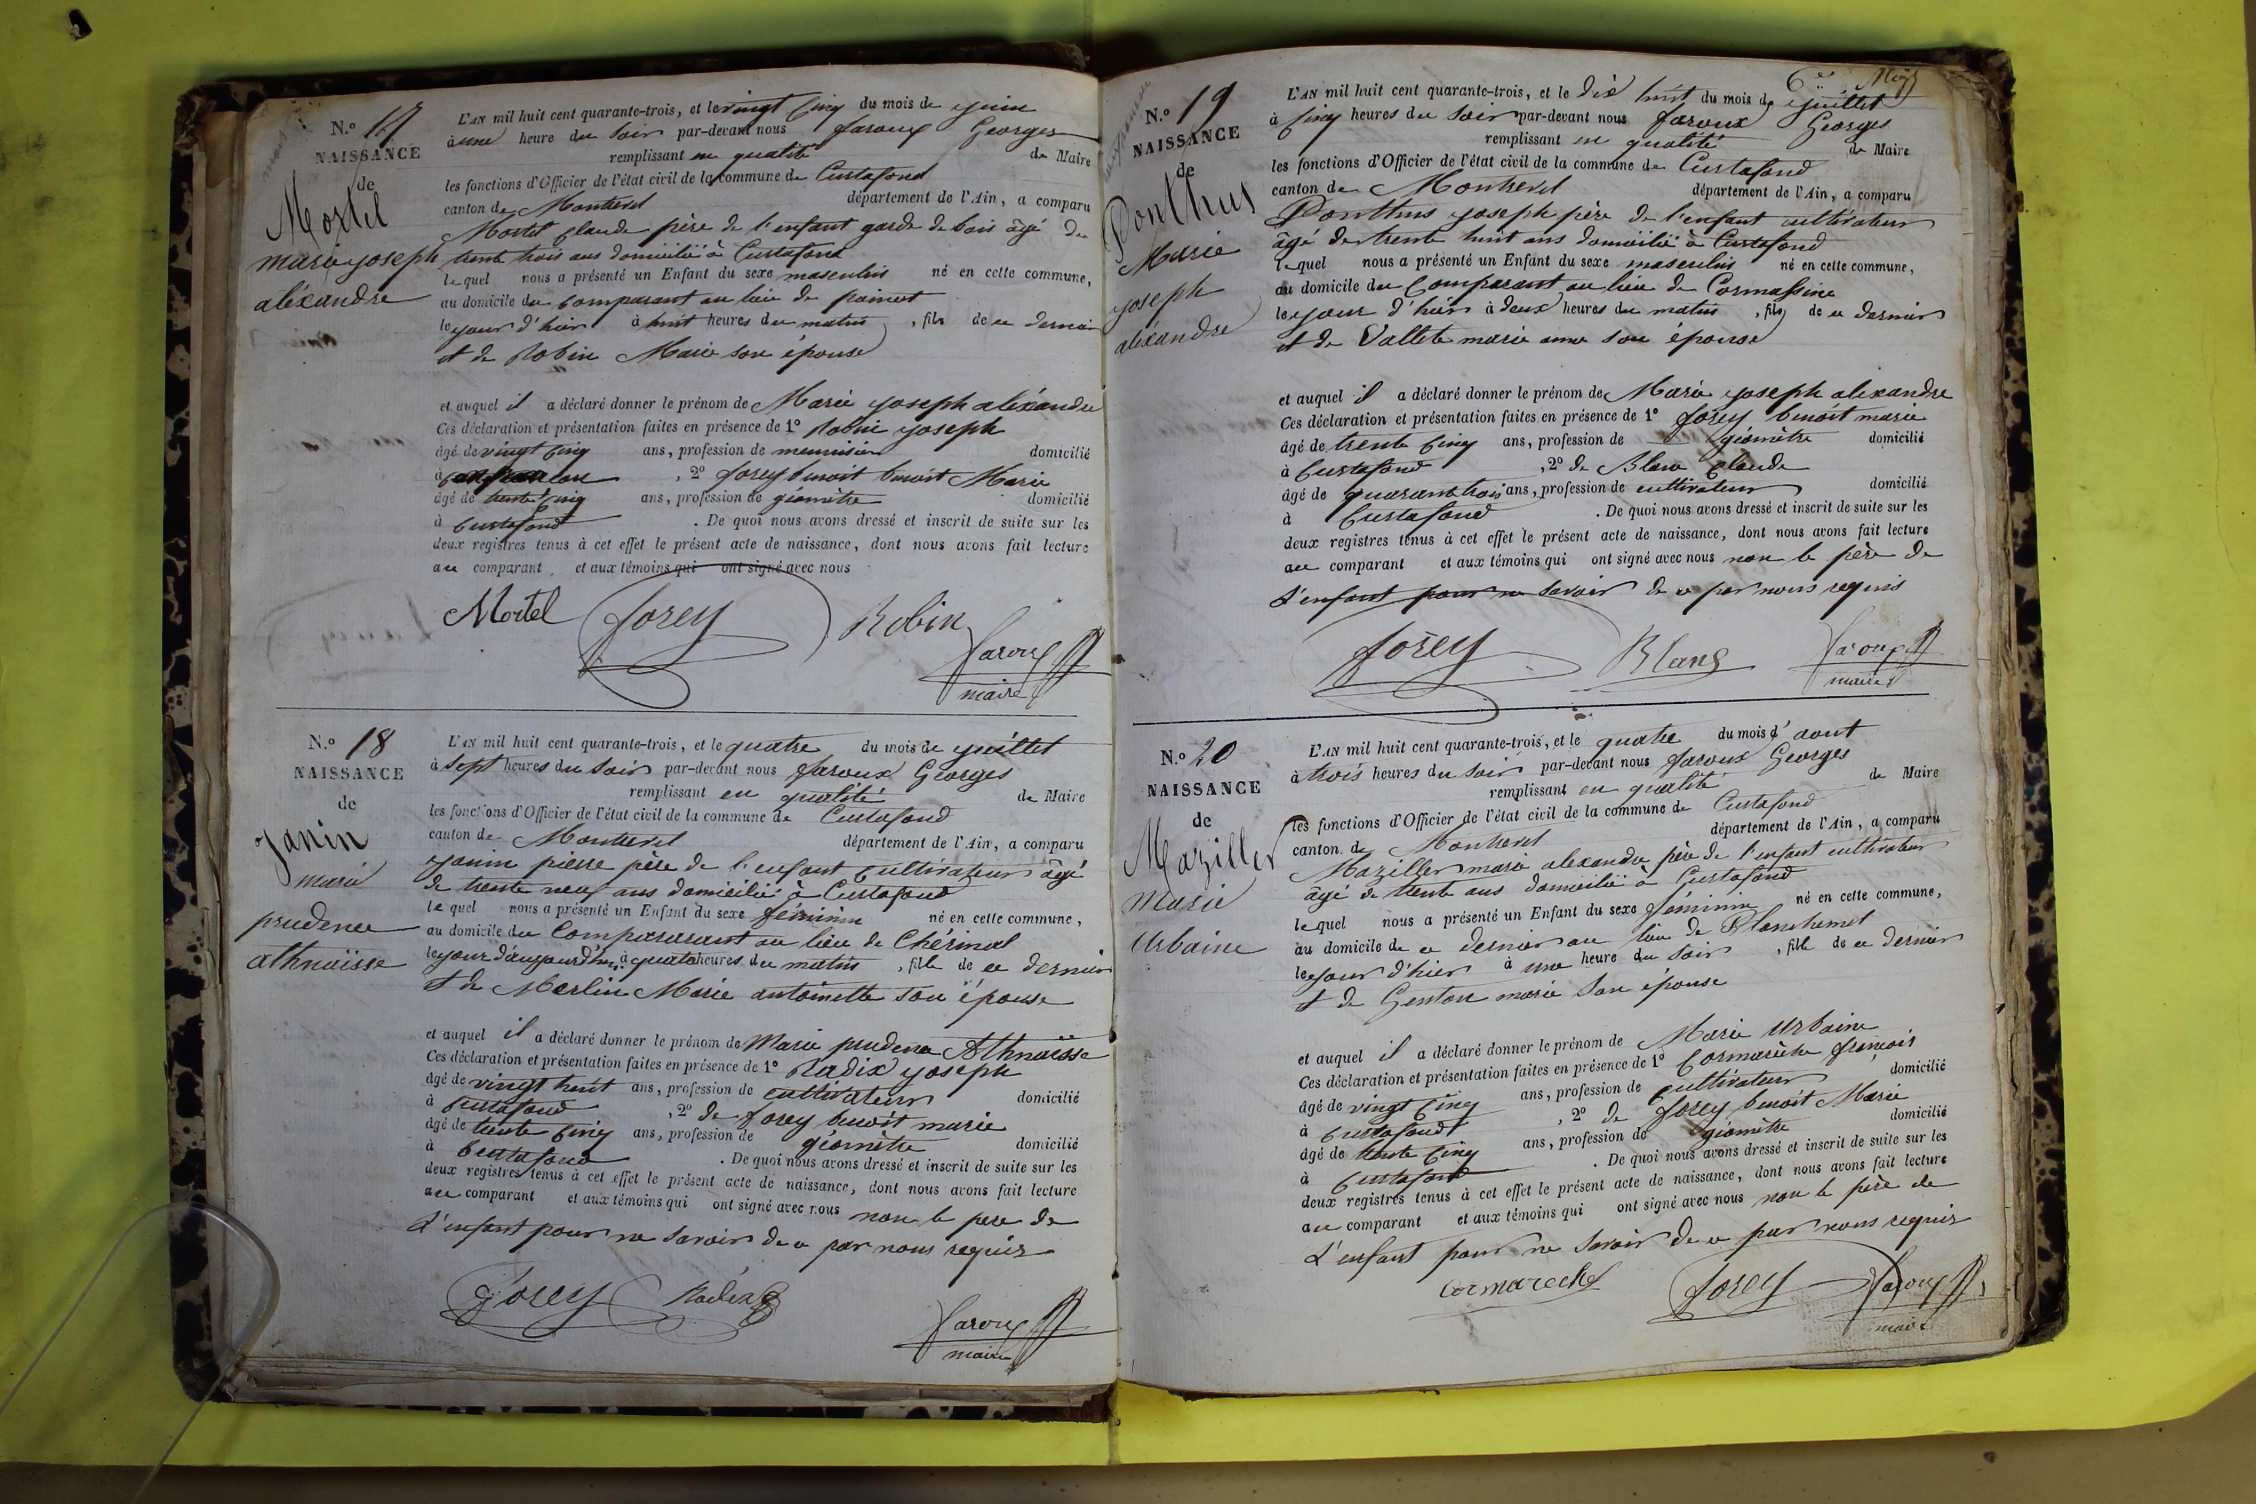 N.º 17
NAISSANCE
de
Mortel
marie joseph
aléxandre
L'AN mil huit cent quarante-trois, et le vingt cinq du mois de juin
à une heure du soir par-devant nous Faroux Georges
remplissant en qualité de Maire
les fonctions d'Officier de l'état civil de la commune de Curtafond
canton de Montrevel département de l'Ain, a comparu
Mortel claude père de l'enfant garde de bois âgé de
trente trois ans domicilié à Curtafond
lequel nous a présenté un Enfant du sexe masculin né en cette commune,
au domicile du comparant au lieu de
le jour d'hier à huit heures du matin, fils de ce dernier
et de Robin Marie son épouse
et auquel il a déclaré donner le prénom de Marie joseph aléxandre
Ces déclaration et présentation faites en présence de 1º Robin joseph
âgé de vingt cinq ans, profession de menuisier domicilié
à , 2º forey benoit benoit Marie
âgé de trente cinq ans, profession de géomètre domicilié
à Curtafond . De quoi nous avons dressé et inscrit de suite sur les
deux registres tenus à cet effet le présent acte de naissance, dont nous avons fait lecture
au comparant et aux témoins qui ont signé avec nous
Mortel forey Robin
Faroux
maire
N.º 18
NAISSANCE
de
Janin
marie
prudence
athnaïsse
L'AN mil huit cent quarante-trois, et le quatre du mois de juillet
à sept heures du soir par-devant nous faroux Georges
remplissant en qualité de Maire
les fonctions d'Officier de l'état civil de la commune de Curtafond
canton de Montrevel département de l'Ain, a comparu
janin pierre père de l'enfant cultivateur âgé
de trente neuf ans domicilié à Curtafond
lequel nous a présenté un Enfant du sexe féminin né en cette commune,
au domicile du Comparant au lieu de Chérinal
le jour d'aujourd'hui à quatre heures du matin, fille de ce dernier
et de Merlin Marie antoinette son épouse
et auquel il a déclaré donner le prénom de Marie prudence Athnaïsse
Ces déclaration et présentation faites en présence de 1º Radix joseph
âgé de vingt huit ans, profession de cultivateur domicilié
à Curtafond , 2º de forey benoit marie
âgé de trente cinq ans, profession de géomètre domicilié
à Curtafond . De quoi nous avons dressé et inscrit de suite sur les
deux registres tenus à cet effet le présent acte de naissance, dont nous avons fait lecture
au comparant et aux témoins qui ont signé avec nous non le père de
L'enfant pour ne savoir de ce par nous requis
forey Radix
Faroux
maire
N.º 19
NAISSANCE
de
Ponthus
Marie
joseph
aléxandre
L'AN mil huit cent quarante-trois, et le dix huit du mois de juillet
à cinq heures du soir par-devant nous faroux Georges
remplissant en qualité de Maire
les fonctions d'Officier de l'état civil de la commune de Curtafond
canton de Montrevel département de l'Ain, a comparu
Ponthus joseph père de l'enfant cultivateur
âgé de trente huit ans domicilié à Curtafond
lequel nous a présenté un Enfant du sexe masculin né en cette commune,
au domicile du Comparant au lieu de Cormassine
le jour d'hier à deux heures du matin, fils de ce dernier
et de Vallete marie anne son épouse
et auquel il a déclaré donner le prénom de Marie joseph alexandre
Ces déclaration et présentation faites en présence de 1º forey benoit marie
âgé de trente cinq ans, profession de géomètre domicilié
à Curtafond , 2º de Blanc claude
âgé de quarante trois ans, profession de cultivateur domicilié
à Curtafond . De quoi nous avons dressé et inscrit de suite sur les
deux registres tenus à cet effet le présent acte de naissance, dont nous avons fait lecture
au comparant et aux témoins qui ont signé avec nous non le père de
L'enfant pour ne savoir de ce par nous requis
forey Blanc Faroux
maire
N.º 20
NAISSANCE
de
Maziller
Marie
Urbaine
L'AN mil huit cent quarante-trois, et le quatre du mois d'aout
à trois heures du soir par-devant nous faroux Georges
remplissant en qualité de Maire
les fonctions d'Officier de l'état civil de la commune de Curtafond
canton de Montrevel département de l'Ain, a comparu
Maziller marie alexandre père de l'enfant cultivateur
âgé de trente ans domicilié à Curtafond
lequel nous a présenté un Enfant du sexe féminin né en cette commune,
au domicile de ce dernier au lieu de Planchemel
le jour d'hier à une heure du soir, fille de ce dernier
et de Genton marie son épouse
et auquel il a déclaré donner le prénom de Marie Urbaine
Ces déclaration et présentation faites en présence de 1º Cormarèche françois
âgé de vingt cinq ans, profession de cultivateur domicilié
à Curtafond , 2º de forey benoit Marie
âgé de trente cinq ans, profession de géomètre domicilié
à Curtafond . De quoi nous avons dressé et inscrit de suite sur les
deux registres tenus à cet effet le présent acte de naissance, dont nous avons fait lecture
au comparant et aux témoins qui ont signé avec nous non le père de
L'enfant pour ne savoir de ce par nous requis
Cormareche forey Faroux
maire